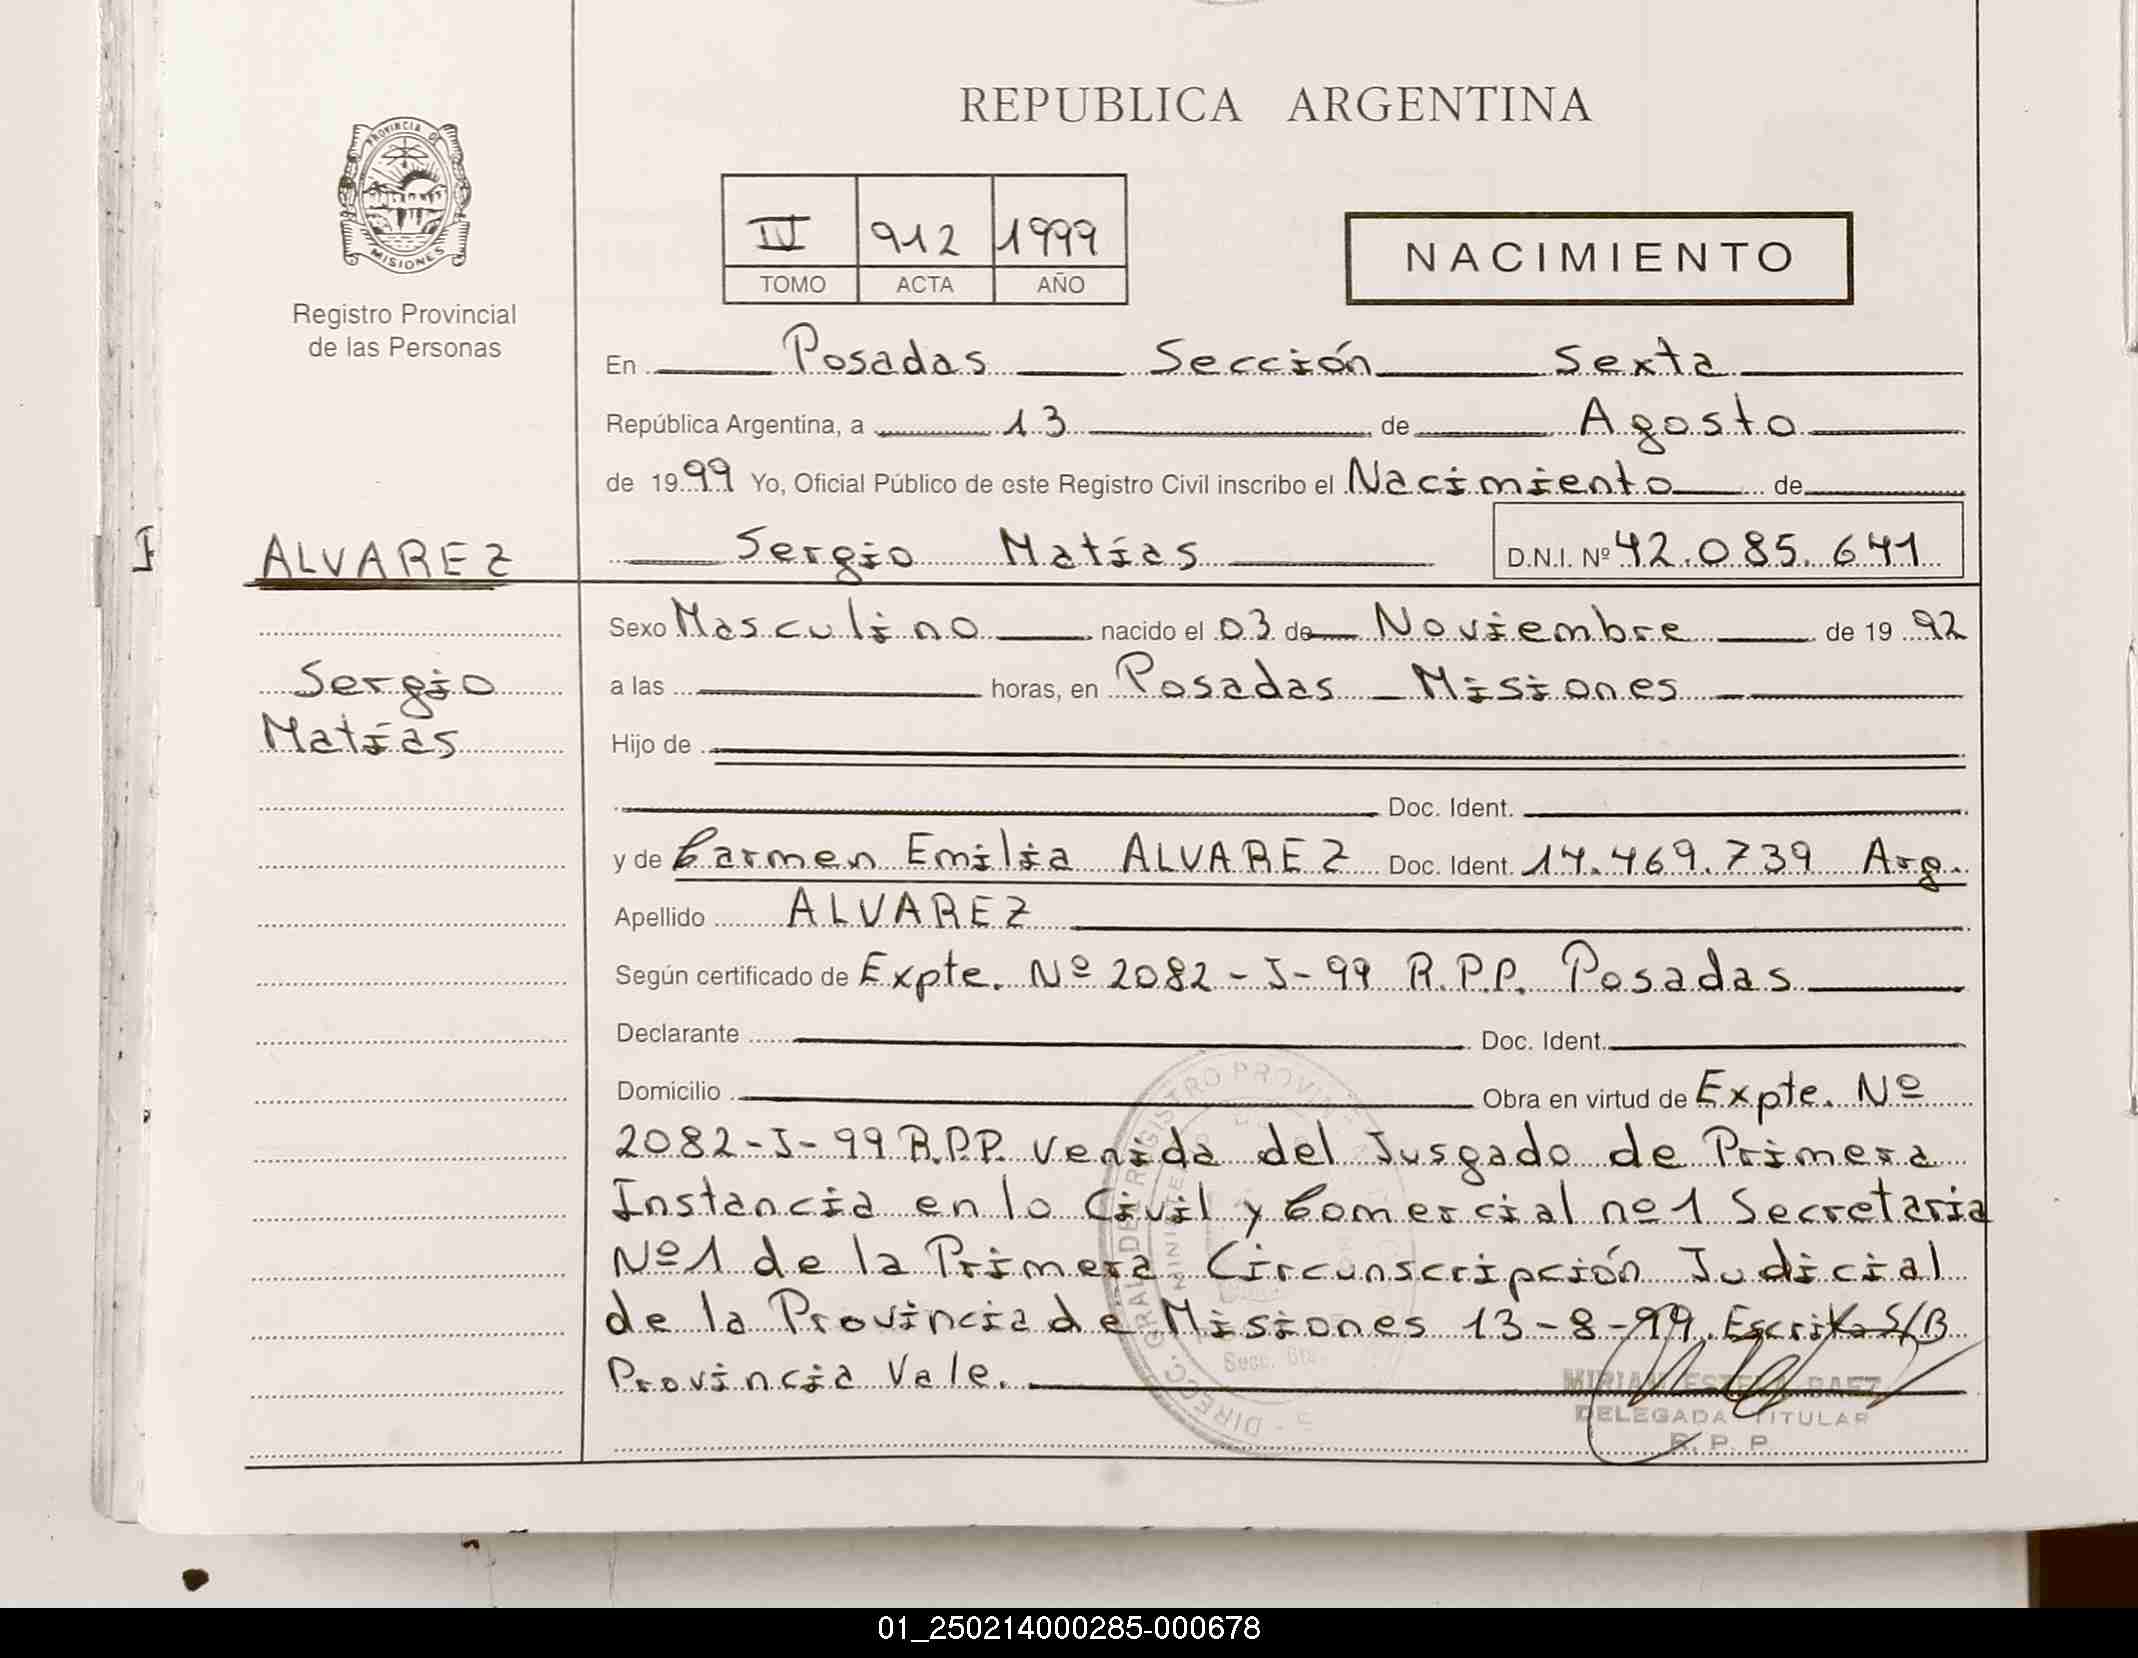 REPUBLICA ARGENTINA
PROVINCIA DE
MISIONES
Registro Provincial
de las Personas
IV 912 1999
TOMO ACTA AÑO
NACIMIENTO
En Posadas Sección Sexta
República Argentina, a 13 de Agosto
de 1999 Yo, Oficial Público de este Registro Civil inscribo el Nacimiento de
ALVAREZ
Sergio Matías D.N.I. Nº 42.085.641
Sexo Masculino nacido el 03 de Noviembre de 19 92
Sergio
Matías
a las horas, en Posadas _ Misiones
Hijo de
Doc. Ident.
y de Carmen Emilia ALVAREZ Doc. Ident. 14.469.739 Arg.
Apellido ALVAREZ
Según certificado de Expte. Nº 2082-J-99 R.P.P. Posadas
Declarante Doc. Ident.
Domicilio Obra en virtud de Expte. Nº
2082-J-99 R.P.P. venida del Jusgado de Primera
Instancia en lo Civil y Comercial nº 1 Secretaria
Nº 1 de la Primera Circunscripción Judicial
de la Provincia de Misiones 13-8-99. Escrita S/B
Provincia Vale.
MIRIAM ESTELA BAEZ
DELEGADA TITULAR
R. P. P.
DIRECC. GRAL DEL REGISTRO PROVIN
01_250214000285-000678